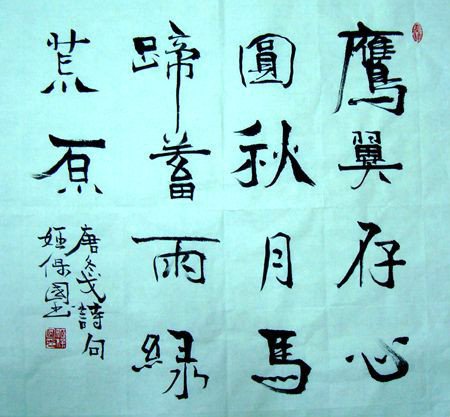 鷹翼存心
圓秋月馬
蹄蓄雨緑
荒原
唐冬戈詩句
姬保國书